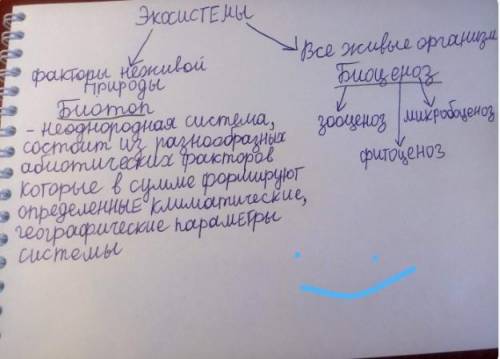 Экосистемы
факторы неживой
природы
Биотоп
- неоднородная система,
состоит из разнообразных
абиотических факторов
которые в сумме формируют
определенные климатические,
географические параметры
системы
Все живые организм
Биоценоз
зооценоз
микробоценоз
фитоценоз